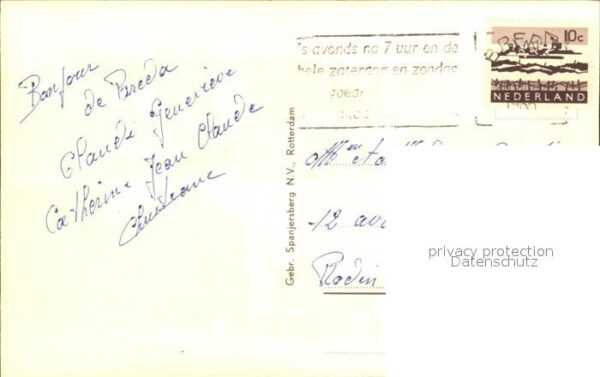 Bonjour
de Breda
Claude Geneviève
Catherine Jean Claude
Christiane
Gebr. Spanjersberg N.V., Rotterdam
's avonds na 7 uur en de
hele zaterdag en zondag
BREDA
10c
NEDERLAND
12 av
Rodin
privacy protection
Datenschutz